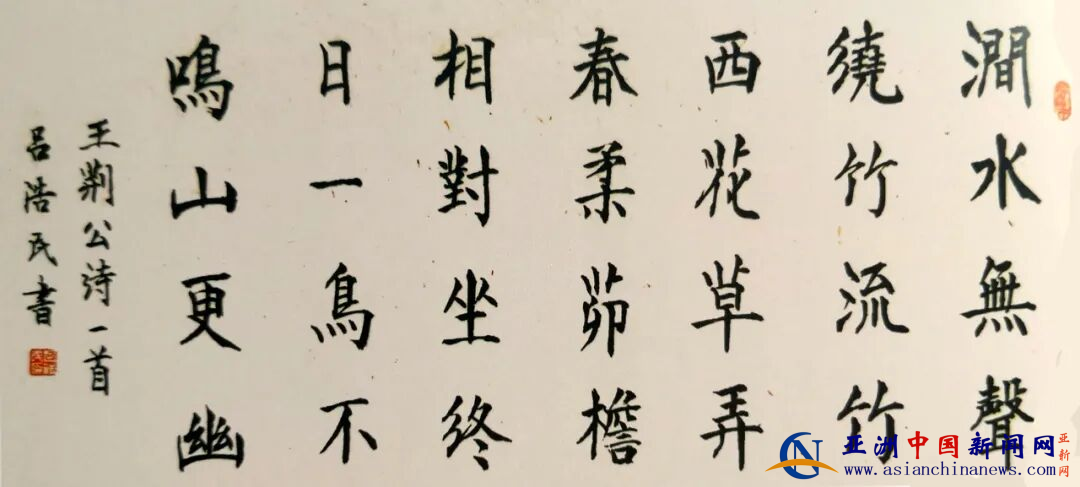 澗水無聲
繞竹流竹
西花草弄
春柔茆檐
相對坐終
日一鳥不
鳴山更幽
王荆公诗一首
吕浩民書
亚洲中国新闻网
亚新网
www.asianchinanews.com